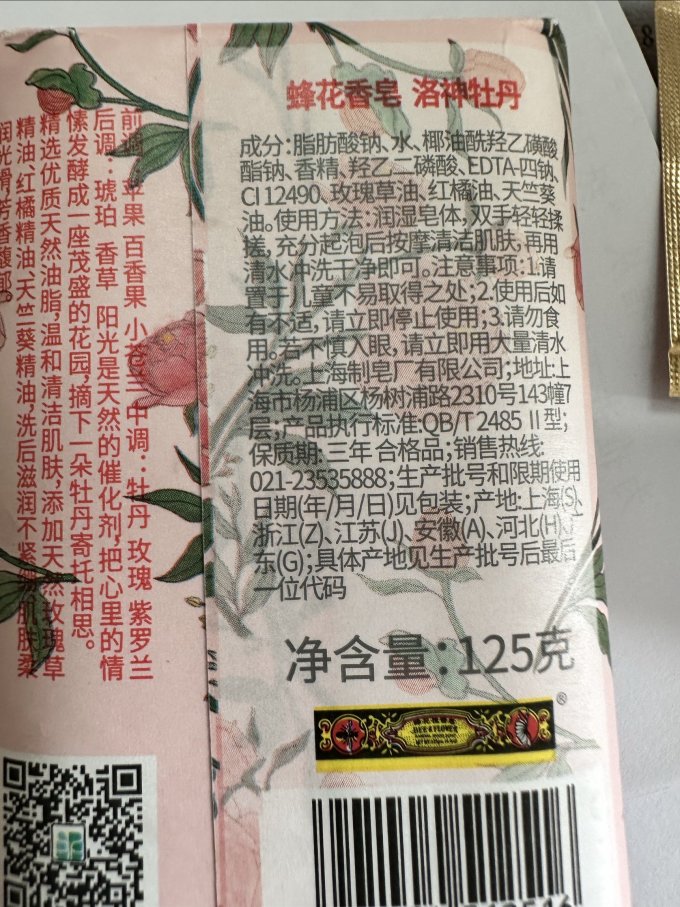 蜂花香皂 洛神牡丹
成分:脂肪酸钠、水、椰油酰羟乙磺酸
酯钠、香精、羟乙二磷酸、EDTA-四钠、
CI 12490、玫瑰草油、红橘油、天竺葵
油。使用方法:润湿皂体,双手轻轻揉
搓,充分起泡后按摩清洁肌肤,再用
清水冲洗干净即可。注意事项:1.请
置于儿童不易取得之处;2.使用后如
有不适,请立即停止使用;3.请勿食
用。若不慎入眼,请立即用大量清水
冲洗。上海制皂厂有限公司;地址:上
海市杨浦区杨树浦路2310号143幢7
层;产品执行标准:QB/T 2485 II型;
保质期:三年 合格品;销售热线:
021-23535888;生产批号和限期使用
日期(年/月/日)见包装;产地:上海(S)、
浙江(Z)、江苏(J)、安徽(A)、河北(H)、广
东(G);具体产地见生产批号后最后
一位代码
净含量:125克
BEE & FLOWER
®
前调:苹果 百香果 小苍兰 中调:牡丹 玫瑰 紫罗兰
后调:琥珀 香草 阳光是天然的催化剂,把心里的情
愫发酵成一座茂盛的花园,摘下一朵牡丹寄托相思。
精选优质天然油脂,温和清洁肌肤,添加天然玫瑰草
精油、红橘精油、天竺葵精油,洗后滋润不紧绷,肌肤柔
润光滑,芳香馥郁。